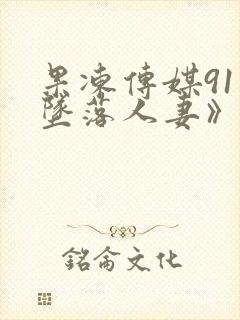 果凍傳媒91
墜落人妻》
銘侖文化